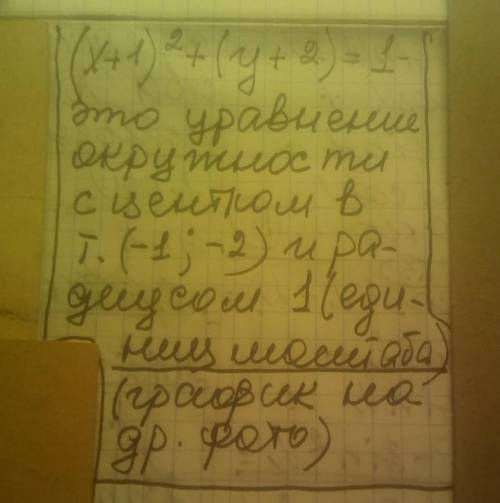 (x+1)²+(y+2)=1-
это уравнение
окружности
с центром в
т. (-1; -2) и ра-
диусом 1 (еди-
ниц масштаба)
(график на
др. фото)